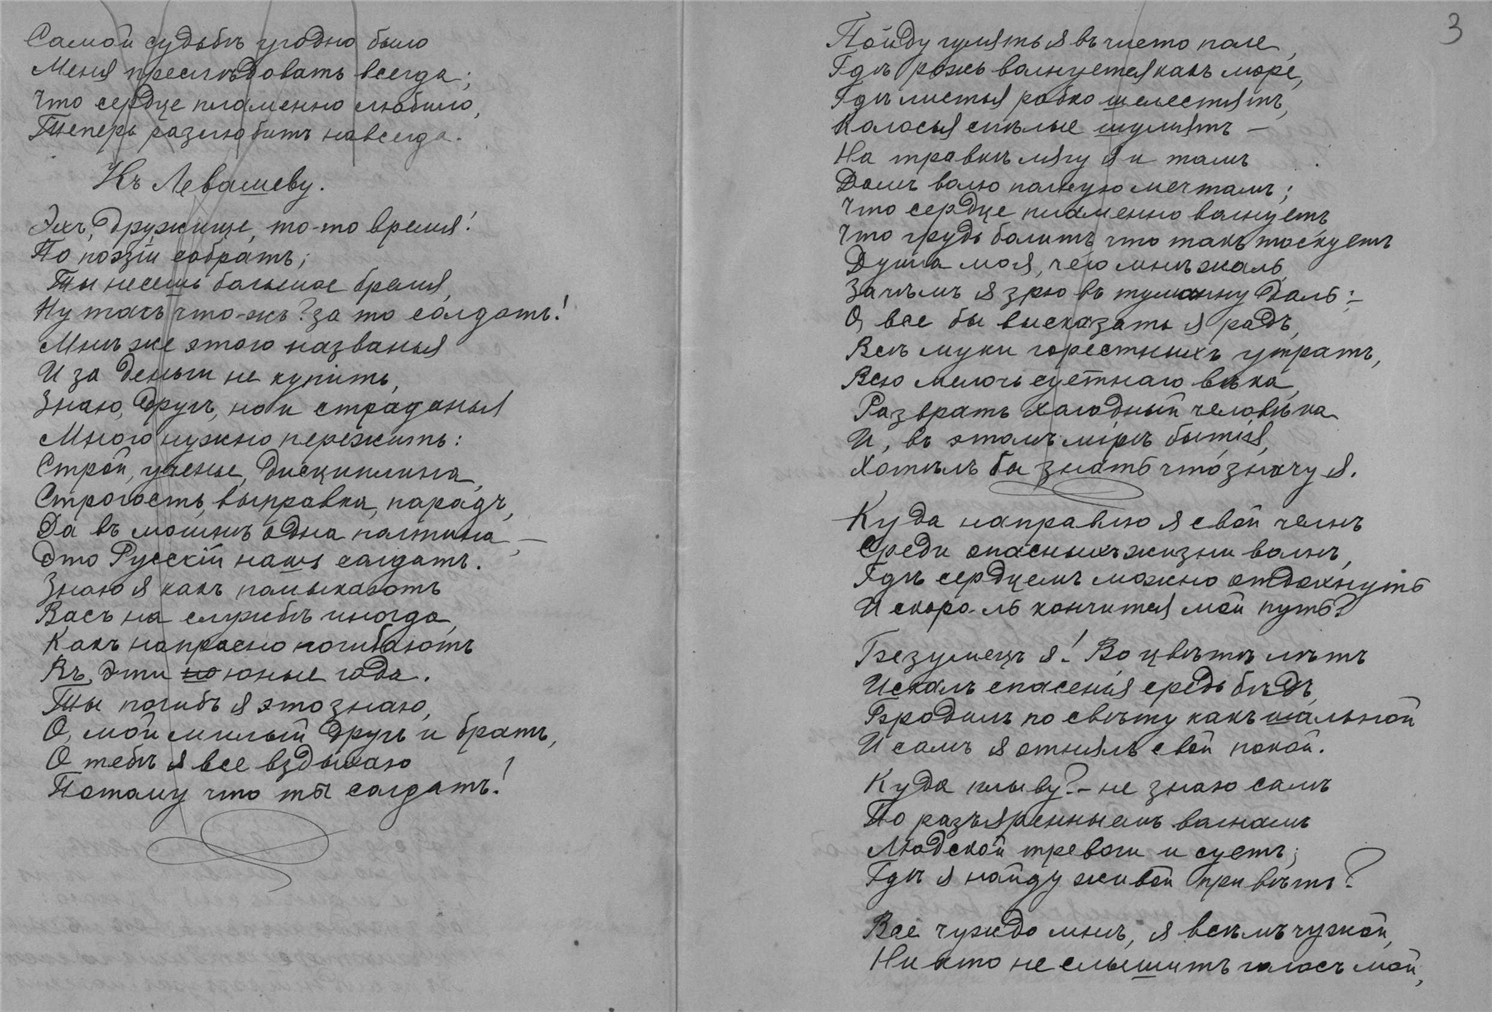 Самой судьбѣ угодно было
Меня преслѣдовать всегда;
Что сердце пламенно любило,
Теперь разлюбить навсегда.
Къ Левашеву.
Эхъ, дружище, то-то время!
По поэзіи собратъ;
Ты несешь большое бремя,
Ну такъ что-жъ? за то солдатъ!
Мнѣ же этого названья
И за деньги не купить,
Знаю, другъ, но и страданья
Много нужно пережить:
Строй, ученье, дисциплина,
Строгость, выправка, парадъ,
Да въ мошнѣ одна полтина, —
Это Русскій нашъ солдатъ.
Знаю я какъ помыкаютъ
Васъ на службѣ иногда,
Какъ напрасно погибаютъ
Въ эти но юные года.
Ты погибъ я это знаю,
О, мой милый другъ и братъ,
О тебѣ я все вздыхаю
Потому что ты солдатъ!
3
Пойду гулять я въ чисто поле,
Гдѣ рожь волнуется какъ море,
Гдѣ листья робко шелестятъ,
Колосья спѣлые шумятъ —
На травкѣ лягу я и тамъ
Дамъ волю полную мечтамъ;
Что сердце пламенно волнуетъ
Что грудь болитъ что такъ тоскуетъ
Душа моя, чего мнѣ жаль,
Зачѣмъ я зрю въ туманну даль: —
О, все бы высказать я радъ,
Всѣ муки горестныхъ утратъ,
Всю мелочь суетнаго вѣка,
Развратъ холодный человѣка
И, въ этомъ мірѣ бытія,
Хотѣлъ бы знать что значу я.
Куда направлю я свой челнъ
Среди опасныхъ жизни волнъ,
Гдѣ сердцемъ можно отдохнуть
И скоро-ль кончится мой путь?
Безумецъ я! Во цвѣтѣ лѣтъ
Искалъ спасенья средь бѣдъ,
Бродилъ по свѣту какъ шальной
И самъ я отнялъ свой покой.
Куда плыву? — не знаю самъ
По разъяреннымъ волнамъ
Людской тревоги и суетъ;
Гдѣ я найду живой привѣтъ?
Все чуждо мнѣ, я всѣмъ чужой,
Никто не слышитъ голосъ мой,